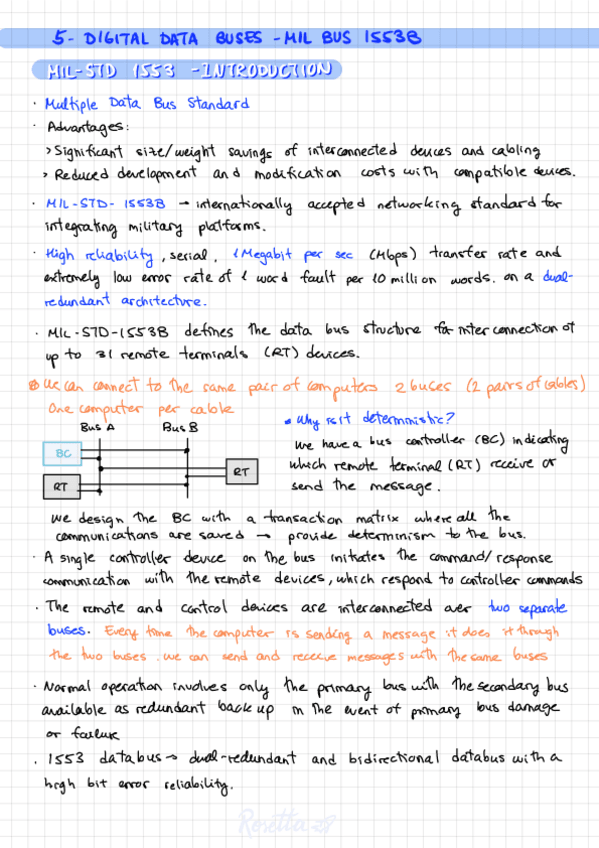 5- DIGITAL DATA BUSES - MIL BUS 1553B
MIL-STD 1553 - INTRODUCTION
· Multiple Data Bus Standard
· Advantages:
> Significant size/weight savings of interconnected devices and cabling
> Reduced development and modification costs with compatible devices.
· MIL-STD-1553B → internationally accepted networking standard for
integrating military platforms.
· High reliability, serial, 1 Megabit per sec (Mbps) transfer rate and
extremely low error rate of 1 word fault per 10 million words. on a dual-
redundant architecture.
· MIL-STD-1553B defines the data bus structure for interconnection of
up to 31 remote terminals (RT) devices.
We can connect to the same pair of computers 2 buses (2 pairs of cables)
One computer per cable
Bus A Bus B
BC
RT
RT
• Why is it deterministic?
We have a bus controller (BC) indicating
which remote terminal (RT) receive or
send the message.
We design the BC with a transaction matrix where all the
communications are saved → provide determinism to the bus.
· A single controller device on the bus initiates the command/response
communication with the remote devices, which respond to controller commands
· The remote and control devices are interconnected over two separate
buses. Every time the computer is sending a message it does it through
the two buses. We can send and receive messages with the same buses
· Normal operation involves only the primary bus with the secondary bus
available as redundant back up in the event of primary bus damage
or failure
. 1553 databus → dual-redundant and bidirectional databus with a
high bit error reliability.
Rosetta